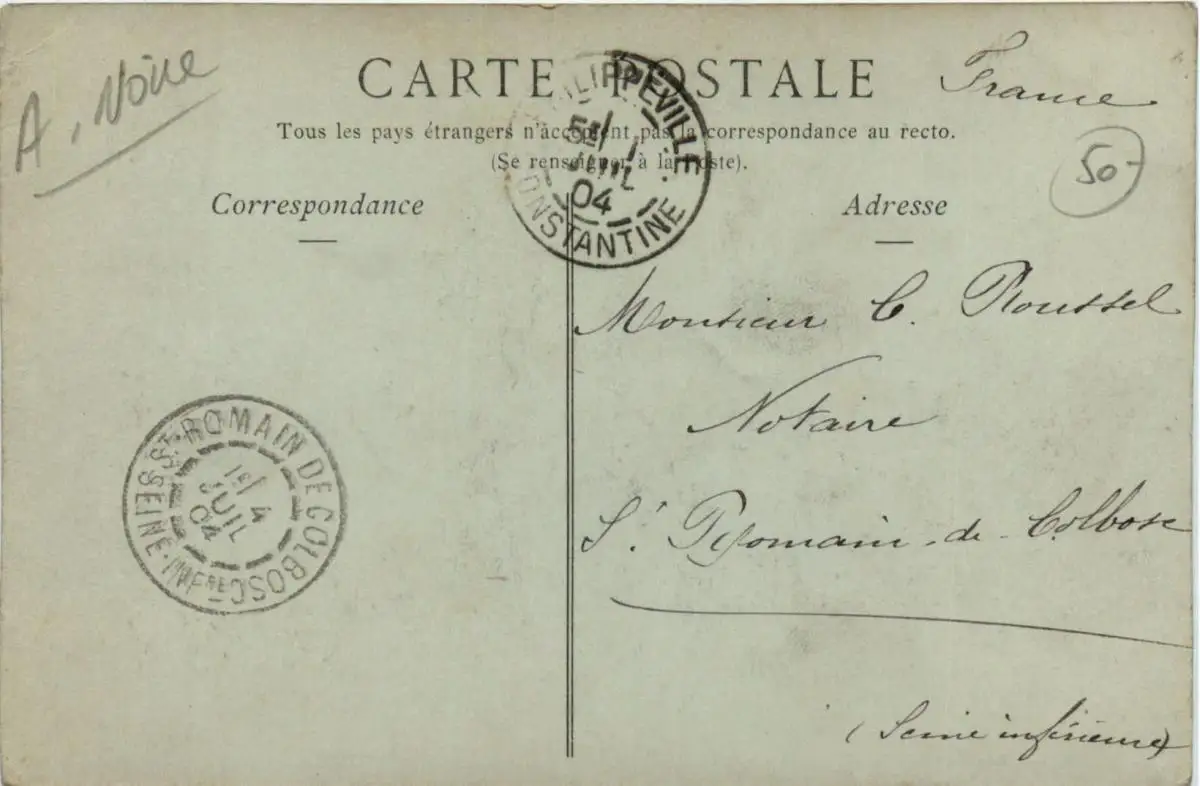 A. Noire
CARTE POSTALE
France
Tous les pays étrangers n'acceptent pas la correspondance au recto.
(Se renseigner à la poste).
50-
Correspondance
Adresse
PHILIPPEVILLE
1
JUIL
04
CONSTANTINE
Monsieur C. Roussel
Notaire
St Romain-de-Colbosc
(Seine inférieure)
ST ROMAIN DE COLBOSC
1E/ 4
JUIL
04
SEINE INFRE